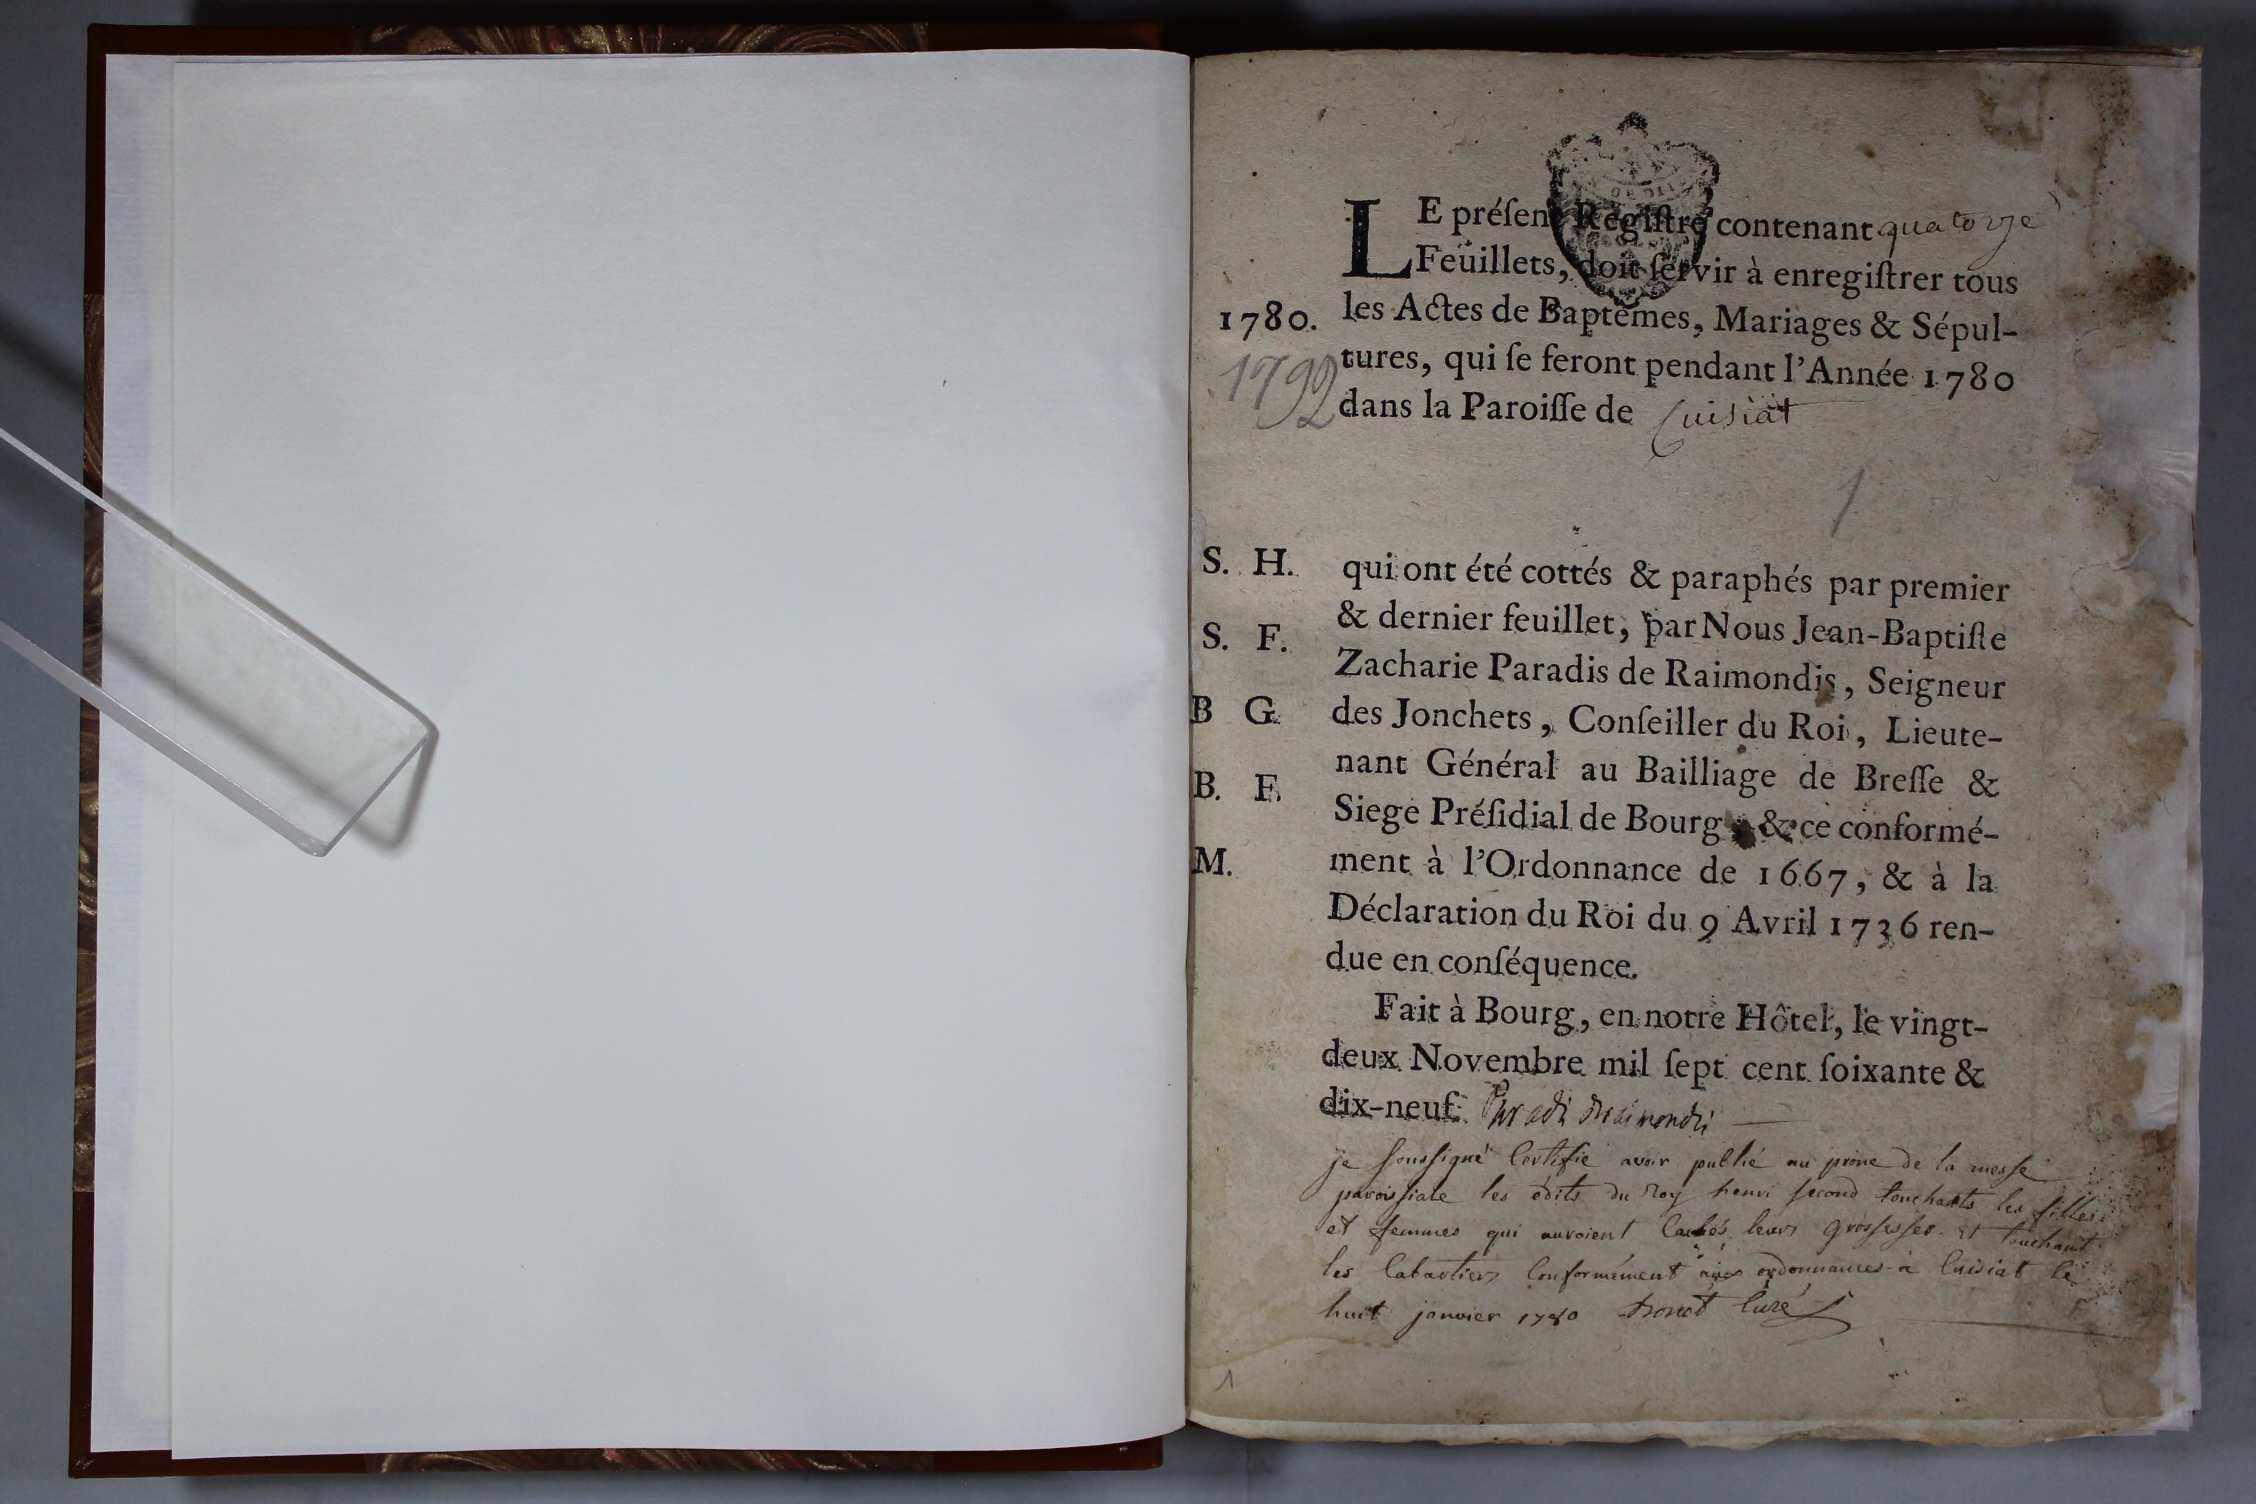 LE préſent Regiſtre contenant quatorze
Feuillets, doit ſervir à enregiſtrer tous
les Actes de Baptêmes, Mariages & Sépul-
tures, qui ſe feront pendant l'Année 1780
dans la Paroiſſe de Cuisiat
1780.
1792
1
qui ont été cottés & paraphés par premier
& dernier feuillet, par Nous Jean-Baptiſte
Zacharie Paradis de Raimondis, Seigneur
des Jonchets, Conſeiller du Roi, Lieute-
nant Général au Bailliage de Breſſe &
Siege Préſidial de Bourg, & ce conformé-
ment à l'Ordonnance de 1667, & à la
Déclaration du Roi du 9 Avril 1736 ren-
due en conſéquence.
S. H.
S. F.
B G.
B. F.
M.
Fait à Bourg, en notre Hôtel, le vingt-
deux Novembre mil ſept cent ſoixante &
dix-neuf. Paradis Draimondis
je soussigné Certifie avoir publié au prone de la messe
paroissiale les édits du Roy henri second touchants les filles
et femmes qui auroient Cachés leurs grossesses et touchant
les Cabartiers Conformément aux ordonnances à Cuisiat le
huit janvier 1780 curé
1